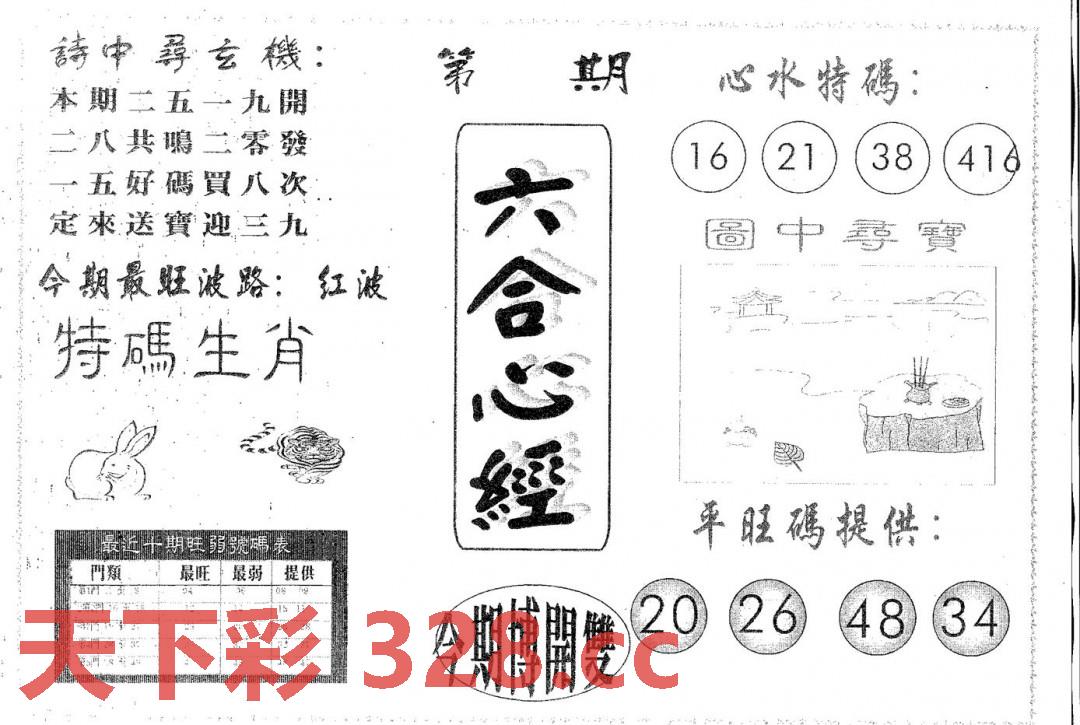 詩中尋玄機：
本期二五一九開
二八共鳴二零發
一五好碼買八次
定來送寶迎三九
今期最旺波路：红波
特碼生肖
最近十期旺弱號碼表
門類 最旺 最弱 提供
第 期
六合心經
今期特開雙
心水特碼：
16 21 38 416
圖中尋寶
平旺碼提供：
20 26 48 34
天下彩 328.cc